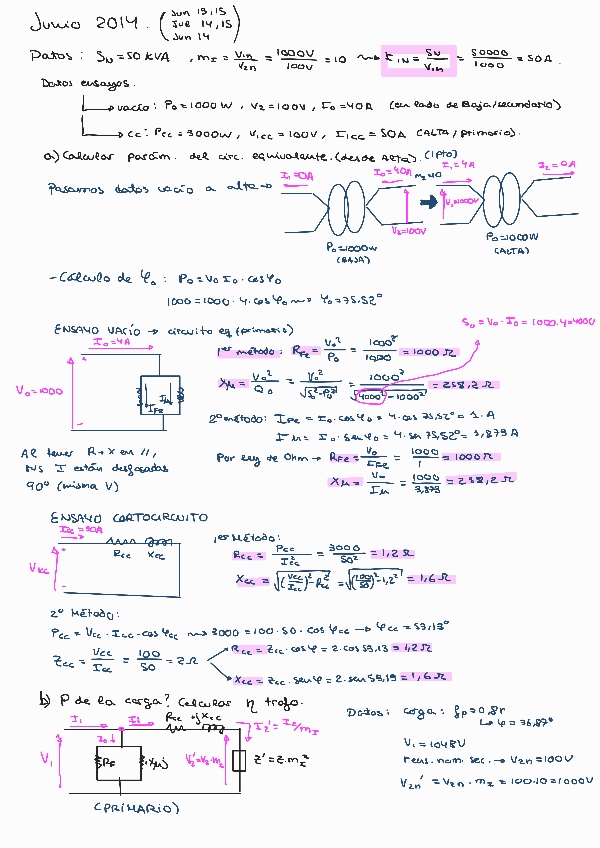 Junio 2014. (Jun 13,15
Jue 14,15
Jun 14)
Datos: SN=50KVA, mT = V1n/V2n = 1000V/100V = 10 → I1N = SN/V1n = 50000/1000 = 50A.
Datos ensayos.
vacío: P0=1000W, V2=100V, I0=40A (en lado de Baja/secundario)
cc: Pcc=3000W, V1cc=100V, I1cc=50A (ALTA/primario).
a) Calcular parám. del circ. equivalente. (desde Alta). (1pto)
Pasamos datos vacío a alta →
I1=0A
I0=40A
V2=100V
P0=1000W
(BAJA)
I1=4A
I2=0A
V1=1000V
P0=1000W
(ALTA)
- Cálculo de φ0: P0=V0 I0·cosφ0
1000=1000·4·cosφ0 → φ0=75,52°
S0=V0·I0=1000·4=4000
ENSAYO VACÍO → circuito eq (primario)
I0=4A
V0=1000
IFe
Iμ
1er método: RFe = V0²/P0 = 1000²/1000 = 1000 Ω
Xμ = V0²/Q0 = V0²/√(S0²-P0²) = 1000²/√(4000²-1000²) = 258,2 Ω
2º método: IFe = I0·cosφ0 = 4·cos 75,52° = 1A
Iμ = I0·senφ0 = 4·sen 75,52° = 3,873 A
Al tener R+X en //,
las I están desfasadas
90° (misma V)
Por Ley de Ohm → RFe = V0/IFe = 1000/1 = 1000 Ω
Xμ = V0/Iμ = 1000/3,873 = 258,2 Ω
ENSAYO CORTOCIRCUITO
Icc=50A
Rcc Xcc
Vcc
1er Método:
Rcc = Pcc/Icc² = 3000/50² = 1,2 Ω
Xcc = √((Vcc/Icc)²-Rcc²) = √((100/50)²-1,2²) = 1,6 Ω
2º Método:
Pcc = Vcc·Icc·cosφcc → 3000=100·50·cosφcc → φcc=53,13°
Zcc = Vcc/Icc = 100/50 = 2Ω
Rcc = Zcc·cosφ = 2·cos 53,13 = 1,2 Ω
Xcc = Zcc·senφ = 2·sen 53,13 = 1,6 Ω
b) P de la carga? Calcular η trafo.
I1
Rcc + jXcc
I2'=I2/mT
I0
V1
RF
Xμj
V2'=V2·mT
Z'=Z·mT²
(PRIMARIO)
Datos: carga: fp=0,8r
↳ φ=36,87°
V1=1048V
tens. nom. sec. → V2n=100V
V2n' = V2n·mT = 100·10 = 1000V